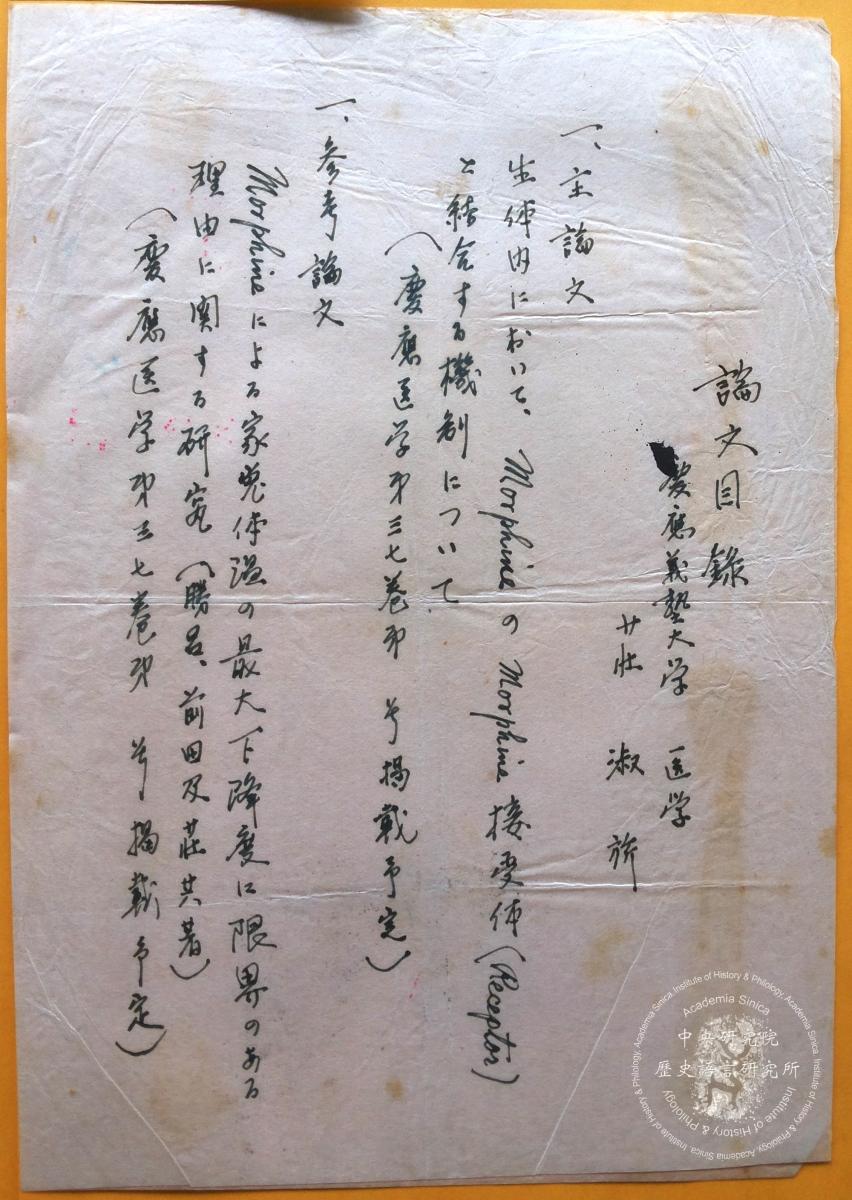 論文目錄
慶應義塾大学 医学
莊淑旂
一、主論文
生体内において、Morphineの Morphine 接受体(Receptor)
と結合する機制について
(慶應医学第三七巻第 号掲載予定)
一、参考論文
Morphineによる家兎体温の最大下降度に限界のある
理由に関する研究(勝呂、前田及莊共著)
(慶應医学第三七巻第 号掲載予定)
中央研究院
歷史語言研究所
Academia Sinica
Institute of History & Philology, Academia Sinica